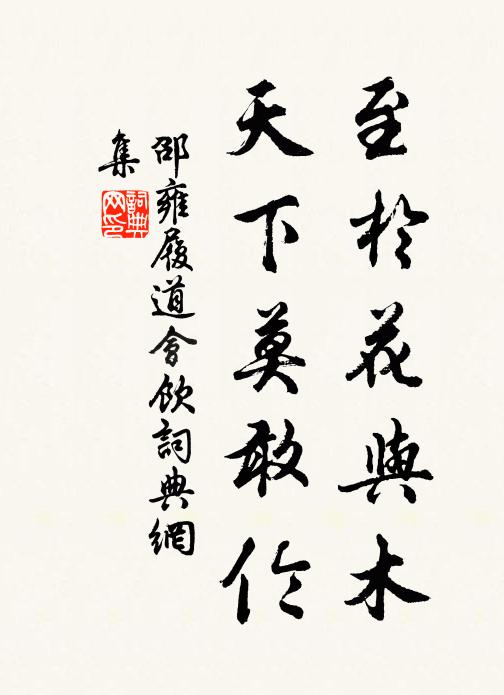 至於花與木
天下莫敢伦
邵雍履道會飲詞典網
集
詞典
网印